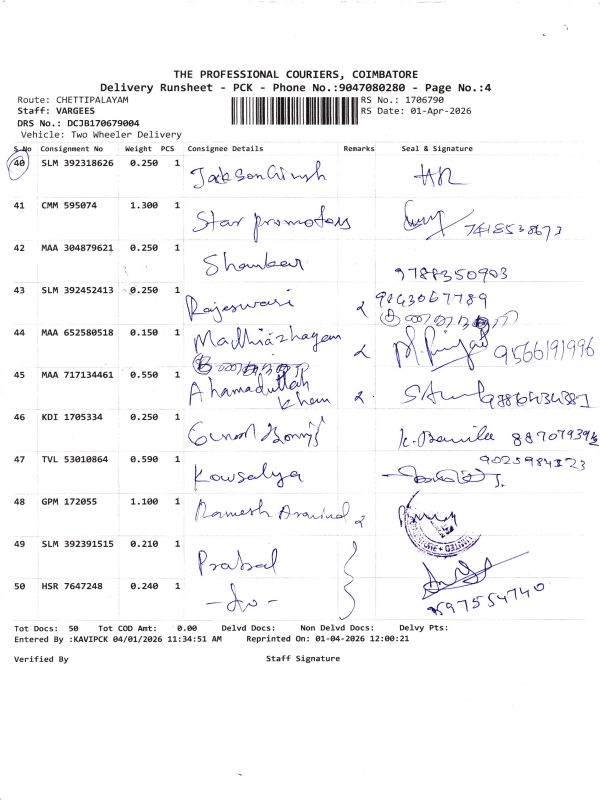 THE PROFESSIONAL COURIERS, COIMBATORE
Delivery Runsheet - PCK - Phone No.:9047080280 - Page No.:4
Route: CHETTIPALAYAM RS No.: 1706790
Staff: VARGEES RS Date: 01-Apr-2026
DRS No.: DCJB170679004
Vehicle: Two Wheeler Delivery
S No Consignment No Weight PCS Consignee Details Remarks Seal & Signature
40 SLM 392318626 0.250 1
41 CMM 595074 1.300 1 Star promoters 7418538673
42 MAA 304879621 0.250 1 Shankar 9788350903
43 SLM 392452413 0.250 1 Rajeswari 2
44 MAA 652580518 0.150 1 Madhiazhagan 2 9566191996
45 MAA 717134461 0.550 1 Ahamadullah khan 2
46 KDI 1705334 0.250 1
47 TVL 53010864 0.590 1 Kowsalya
48 GPM 172055 1.100 1 Ramesh Aravind 2
49 SLM 392391515 0.210 1
50 HSR 7647248 0.240 1 8597554740
Tot Docs: 50 Tot COD Amt: 0.00 Delvd Docs: Non Delvd Docs: Delvy Pts:
Entered By :KAVIPCK 04/01/2026 11:34:51 AM Reprinted On: 01-04-2026 12:00:21
Verified By Staff Signature